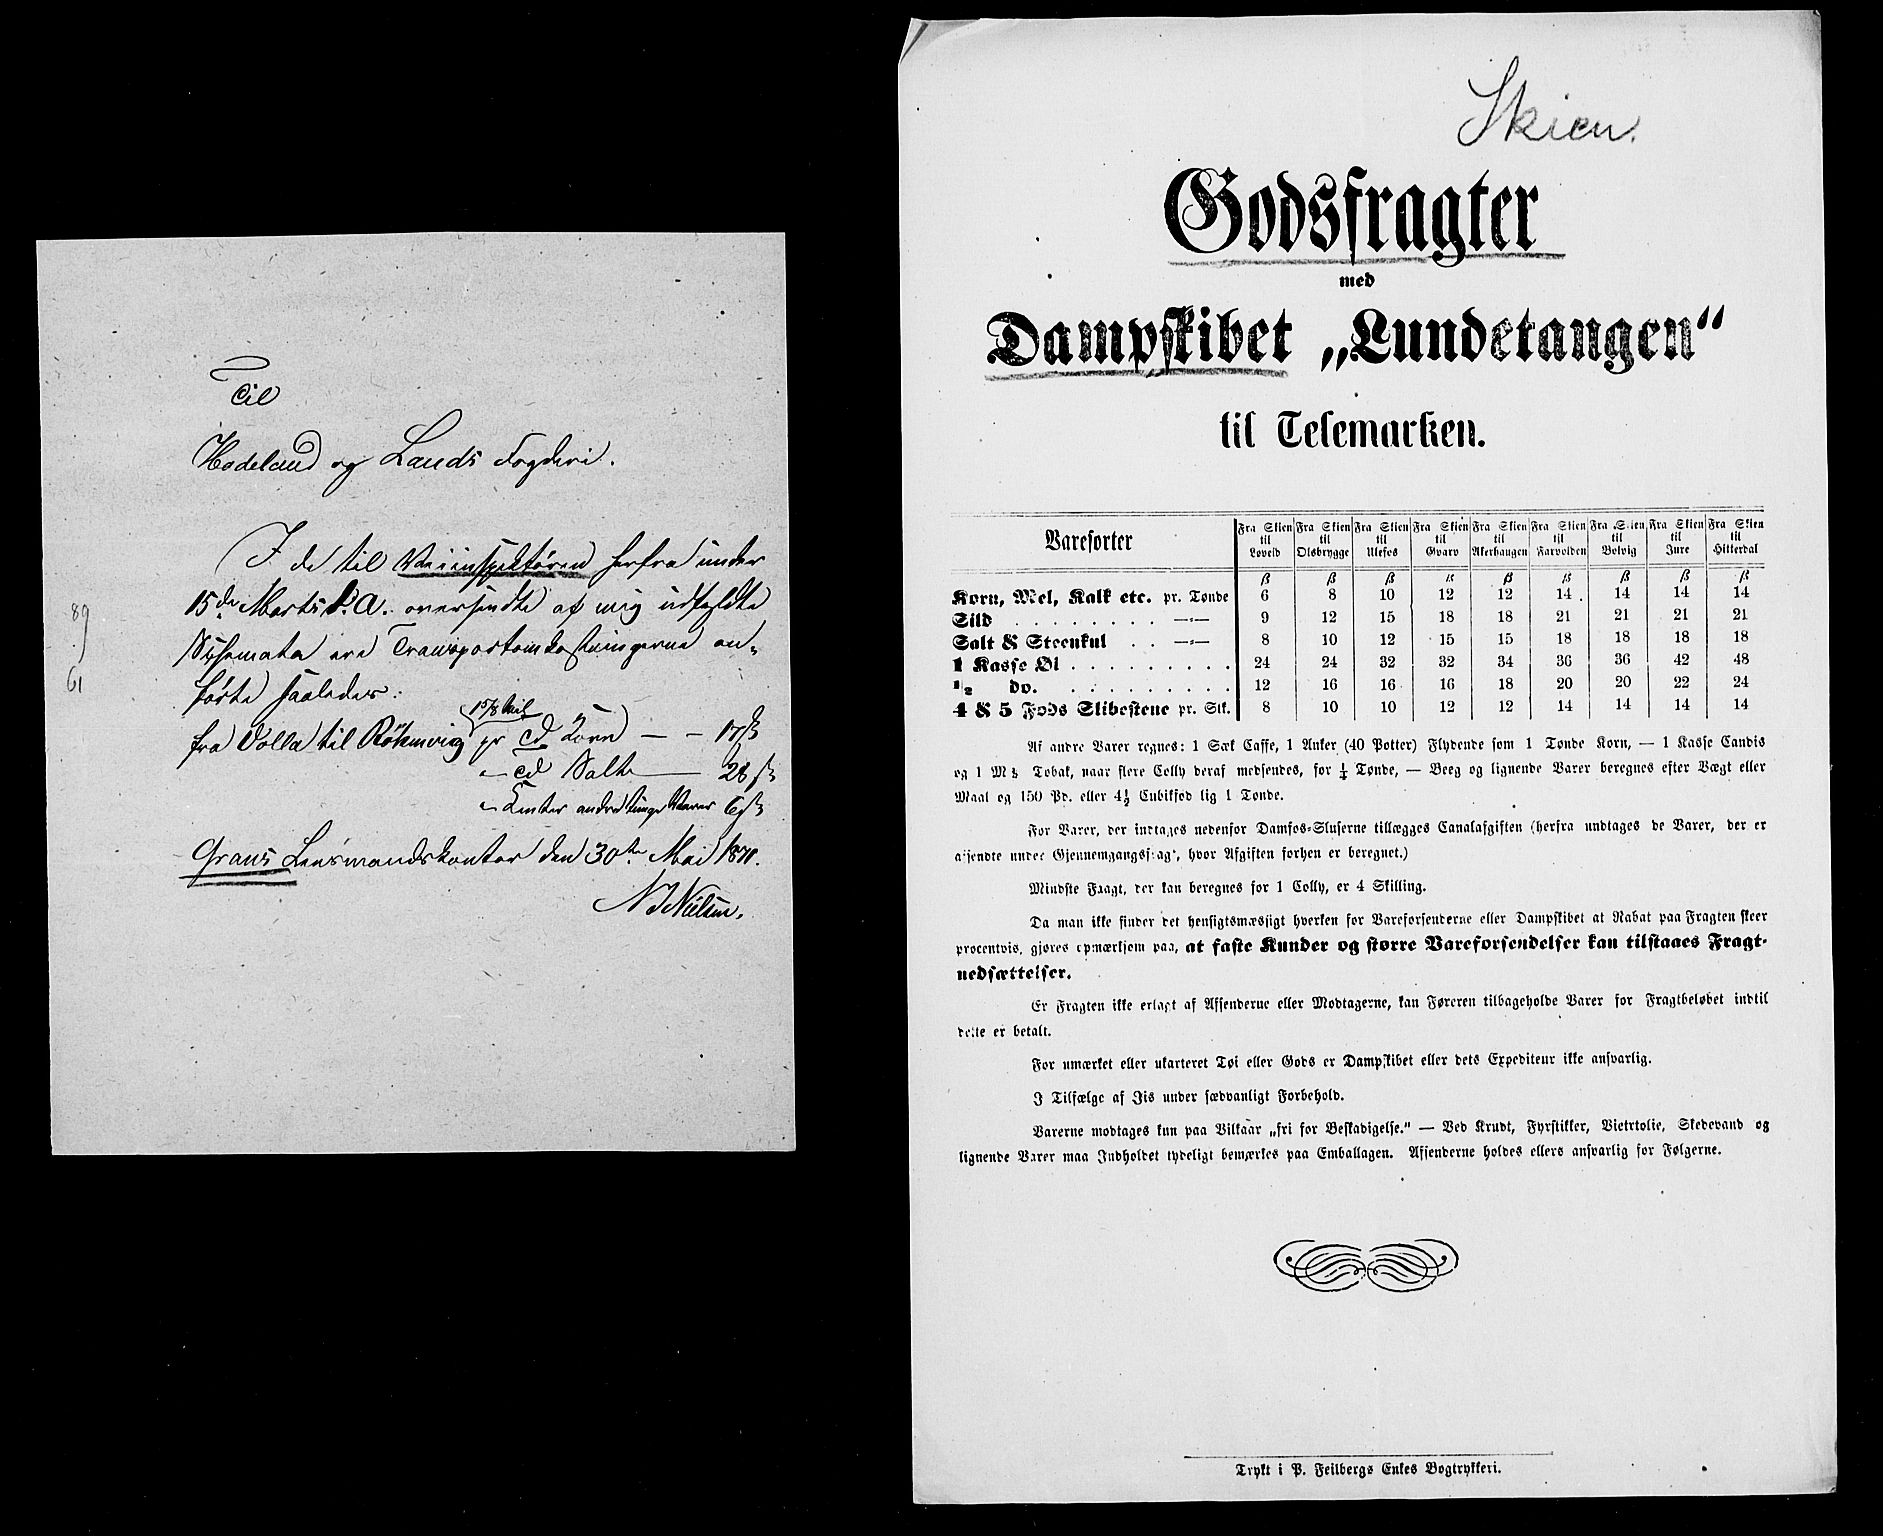 Til
Hadeland og Lands Fogderi.
I de til Veiinspektøren herfra under
15de Marts d. A. oversendte af mig udfyldte
Schemata ere Transportomkostningerne an-
førte saaledes:
15/8 Mil
fra Volla til Røkenvig pr Td Korn — - 17 ß
" Td Salt — 28 ß
" Centner andre tunge Varer 6 ß
Grans Lensmandskontor den 30te Mai 1870.
N Nielsen.
89
61
Skien.
Godsfragter
med
Dampskibet „Lundetangen“
til Telemarken.
Varesorter | Fra Skien til Løveid | Fra Skien til Olsbrygge | Fra Skien til Ulefos | Fra Skien til Gvarv | Fra Skien til Akerhaugen | Fra Skien til Farvolden | Fra Skien til Bolvig | Fra Skien til Jure | Fra Skien til Hitterdal
ß ß ß ß ß ß ß ß ß
Korn, Mel, Kalk etc. pr. Tønde 6 8 10 12 12 14 14 14 14
Sild . . . . . . . . —„— 9 12 15 18 18 21 21 21 21
Salt & Steenkul . . —„— 8 10 12 15 15 18 18 18 18
1 Kasse Øl . . . . . . . . . 24 24 32 32 34 36 36 42 48
½ do. . . . . . . . . . 12 16 16 16 18 20 20 22 24
4 & 5 Fods Slibestene pr. Stk. 8 10 10 12 12 14 14 14 14
Af andre Varer regnes: 1 Sæk Caffe, 1 Anker (40 Potter) Flydende som 1 Tønde Korn, — 1 Kasse Candis
og 1 M℔ Tobak, naar flere Colly deraf medsendes, for ¼ Tønde, — Beeg og lignende Varer beregnes efter Vægt eller
Maal og 150 Pd. eller 4½ Cubikfod lig 1 Tønde.
For Varer, der indtages nedenfor Damfos-Sluserne tillægges Canalafgiften (herfra undtages de Varer, der er
afsendte under Gjennemgangsfragt, hvor Afgiften forhen er beregnet.)
Mindste Fragt, der kan beregnes for 1 Colly, er 4 Skilling.
Da man ikke finder det hensigtsmæssigt hverken for Vareforsenderne eller Dampskibet at Rabat paa Fragten skeer
procentvis, gjøres opmærksom paa, at faste Kunder og større Vareforsendelser kan tilstaaes Fragt-
nedsættelser.
Er Fragten ikke erlagt af Afsenderne eller Modtagerne, kan Føreren tilbageholde Varer for Fragtbeløbet indtil
dette er betalt.
For umærket eller ukarteret Tøi eller Gods er Dampskibet eller dets Expediteur ikke ansvarlig.
I Tilfælge af Iis under sædvanligt Forbehold.
Varerne modtages kun paa Vilkaar „fri for Beskadigelse.“ — Ved Krudt, Fyrstikker, Vietrtolie, Skedevand og
lignende Varer maa Indholdet tydeligt bemærkes paa Emballagen. Afsenderne holdes ellers ansvarlig for Følgerne.
Trykt i P. Feilbergs Enkes Bogtrykkeri.